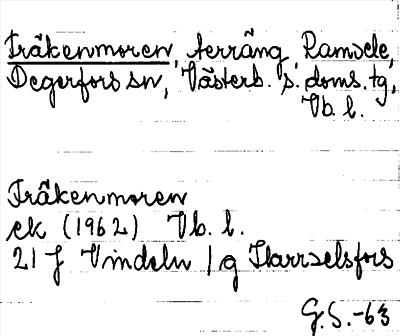 Fräkenmoren, terräng, Ramsele,
Degerfors sn, Västerb. s. doms. tg,
Vb. l.
Fräkenmoren
ek (1962) Vb. l.
21 f Vindeln / g Harrselsfors
G.S.-63